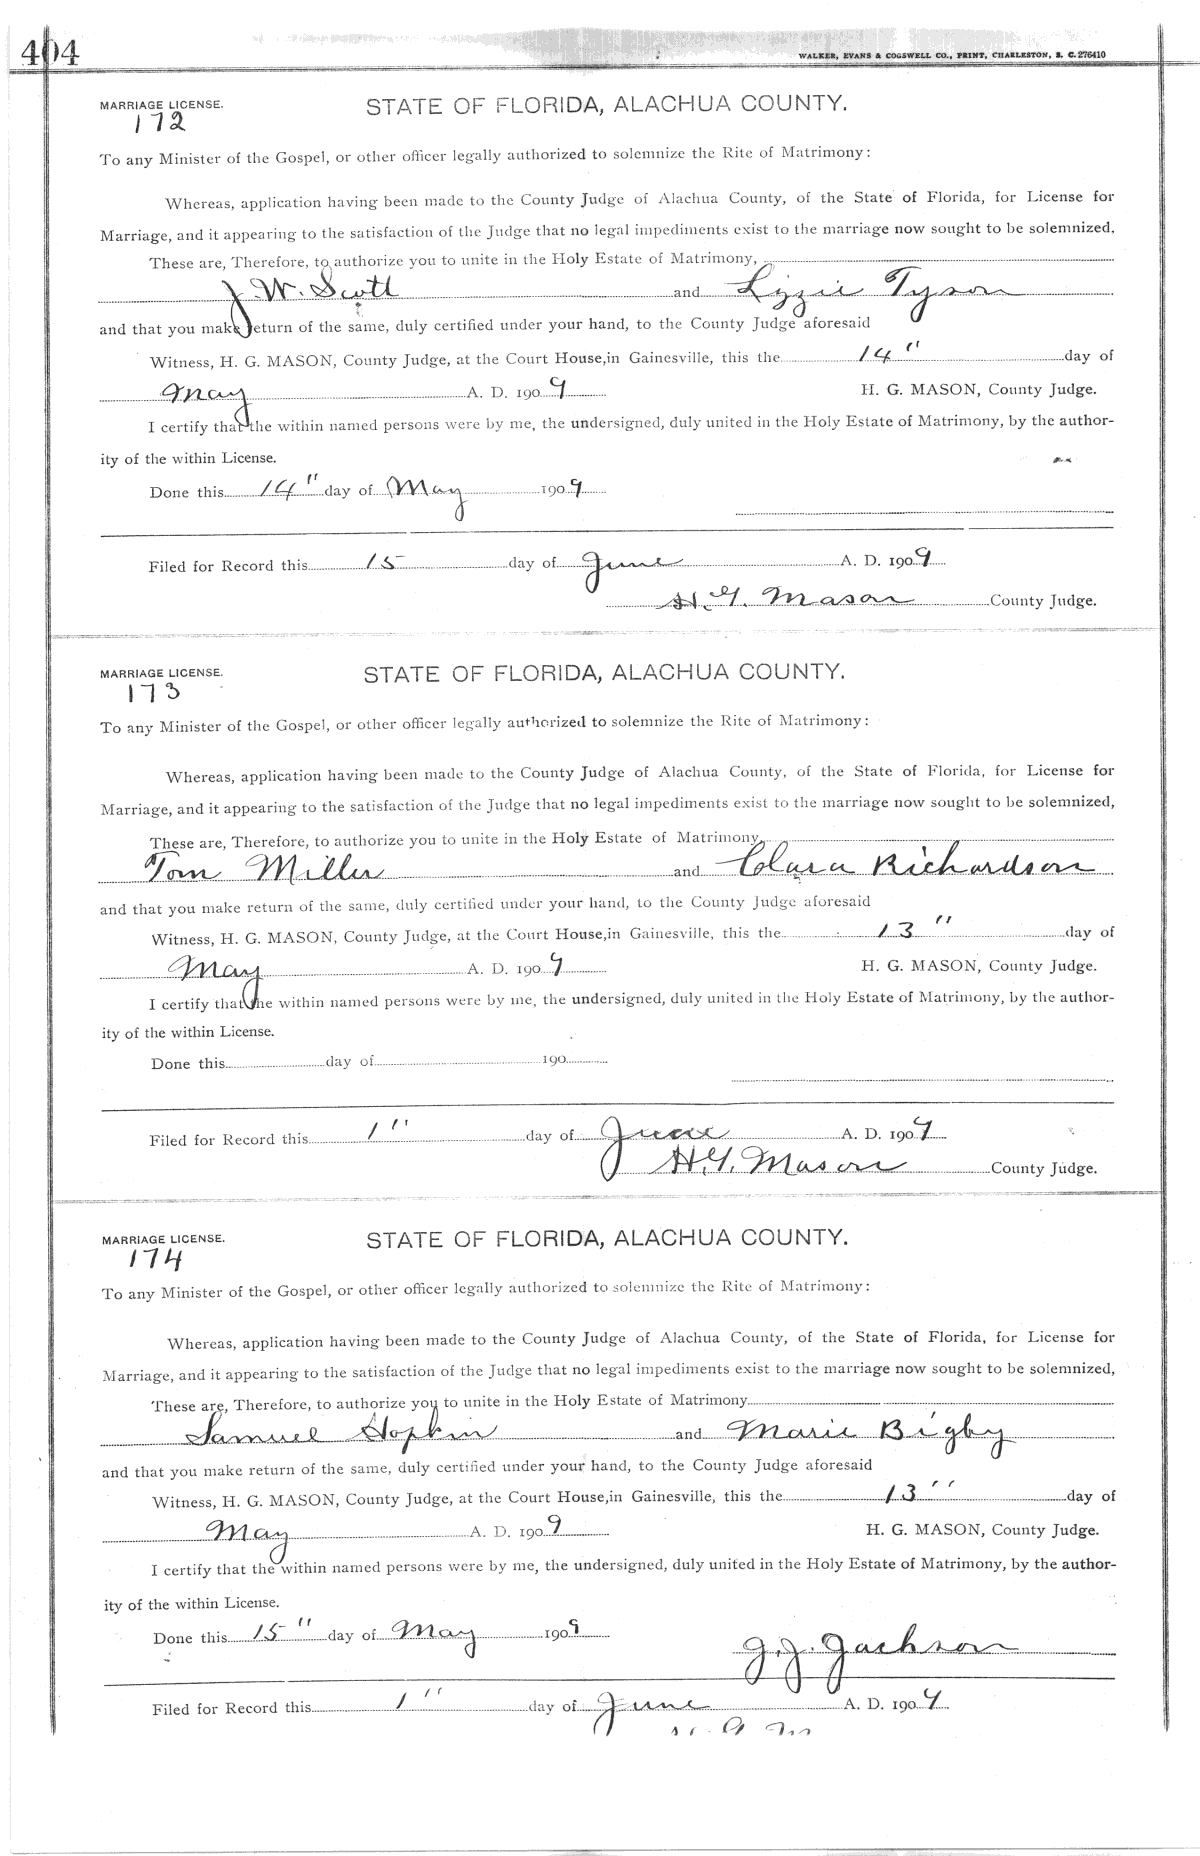 404
WALKER, EVANS & COGSWELL CO., PRINT, CHARLESTON, S. C. 276410
MARRIAGE LICENSE. STATE OF FLORIDA, ALACHUA COUNTY.
172
To any Minister of the Gospel, or other officer legally authorized to solemnize the Rite of Matrimony:
Whereas, application having been made to the County Judge of Alachua County, of the State of Florida, for License for
Marriage, and it appearing to the satisfaction of the Judge that no legal impediments exist to the marriage now sought to be solemnized,
These are, Therefore, to authorize you to unite in the Holy Estate of Matrimony,
J. W. Scott and Lizzie Tyson
and that you make return of the same, duly certified under your hand, to the County Judge aforesaid
Witness, H. G. MASON, County Judge, at the Court House, in Gainesville, this the 14" day of
May A. D. 1909 H. G. MASON, County Judge.
I certify that the within named persons were by me, the undersigned, duly united in the Holy Estate of Matrimony, by the author-
ity of the within License.
Done this 14" day of May 1909
Filed for Record this 15 day of June A. D. 1909
H. G. Mason County Judge.
MARRIAGE LICENSE. STATE OF FLORIDA, ALACHUA COUNTY.
173
To any Minister of the Gospel, or other officer legally authorized to solemnize the Rite of Matrimony:
Whereas, application having been made to the County Judge of Alachua County, of the State of Florida, for License for
Marriage, and it appearing to the satisfaction of the Judge that no legal impediments exist to the marriage now sought to be solemnized,
These are, Therefore, to authorize you to unite in the Holy Estate of Matrimony,
Tom Miller and Clara Richardson
and that you make return of the same, duly certified under your hand, to the County Judge aforesaid
Witness, H. G. MASON, County Judge, at the Court House, in Gainesville, this the 13" day of
May A. D. 1909 H. G. MASON, County Judge.
I certify that the within named persons were by me, the undersigned, duly united in the Holy Estate of Matrimony, by the author-
ity of the within License.
Done this day of 190
Filed for Record this 1" day of June A. D. 1909
H. G. Mason County Judge.
MARRIAGE LICENSE. STATE OF FLORIDA, ALACHUA COUNTY.
174
To any Minister of the Gospel, or other officer legally authorized to solemnize the Rite of Matrimony:
Whereas, application having been made to the County Judge of Alachua County, of the State of Florida, for License for
Marriage, and it appearing to the satisfaction of the Judge that no legal impediments exist to the marriage now sought to be solemnized,
These are, Therefore, to authorize you to unite in the Holy Estate of Matrimony
Samuel Hopkin and Marie Bigby
and that you make return of the same, duly certified under your hand, to the County Judge aforesaid
Witness, H. G. MASON, County Judge, at the Court House, in Gainesville, this the 13" day of
May A. D. 1909 H. G. MASON, County Judge.
I certify that the within named persons were by me, the undersigned, duly united in the Holy Estate of Matrimony, by the author-
ity of the within License.
Done this 15" day of May 1909
J. J. Jackson
Filed for Record this 1" day of June A. D. 1909